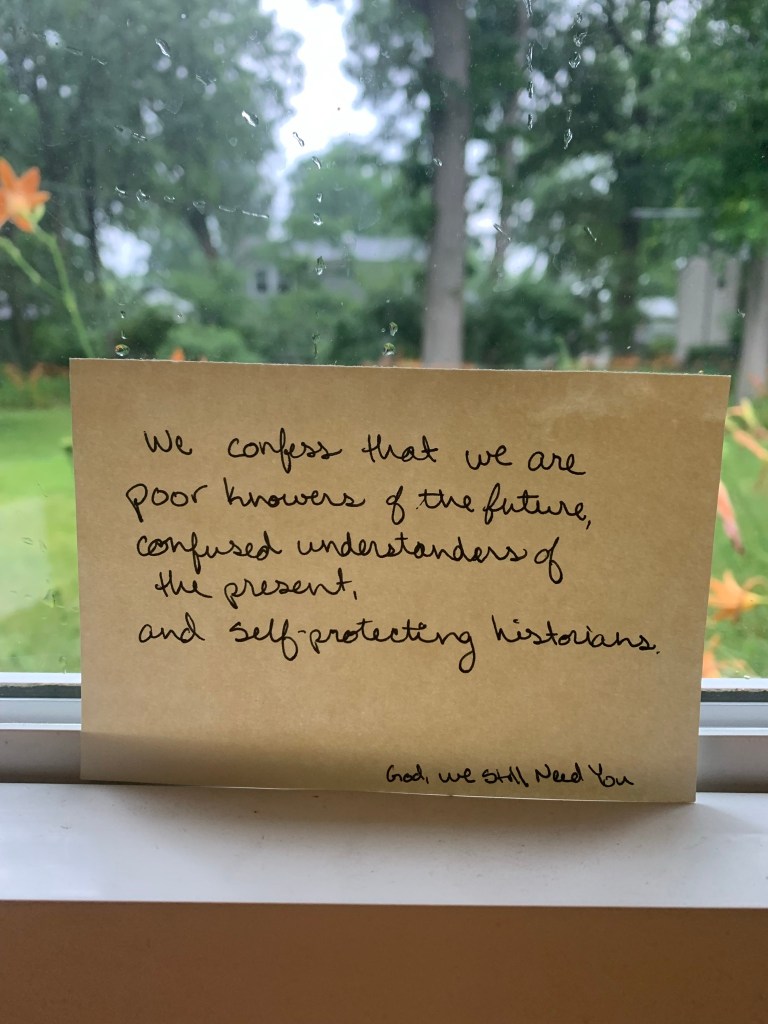 We confess that we are
poor knowers of the future,
confused understanders of
the present,
and self-protecting historians.
God, we Still Need You